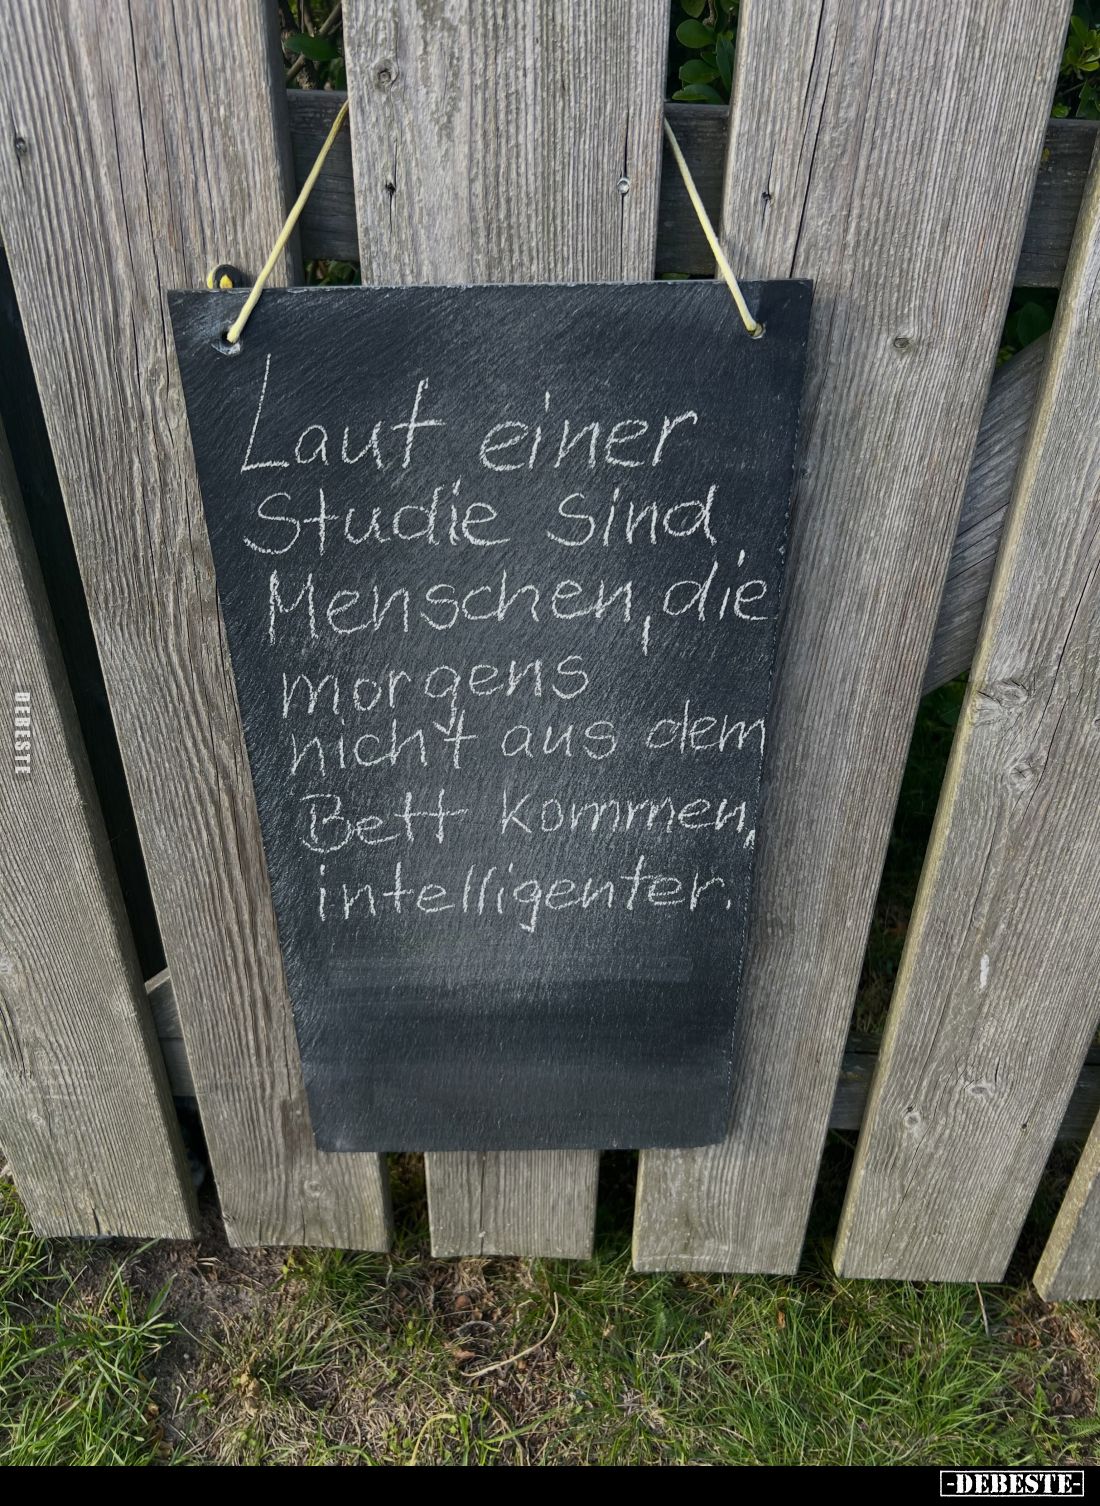 Laut einer
Studie sind
Menschen, die
morgens
nicht aus dem
Bett kommen,
intelligenter.
DEBESTE
-DEBESTE-